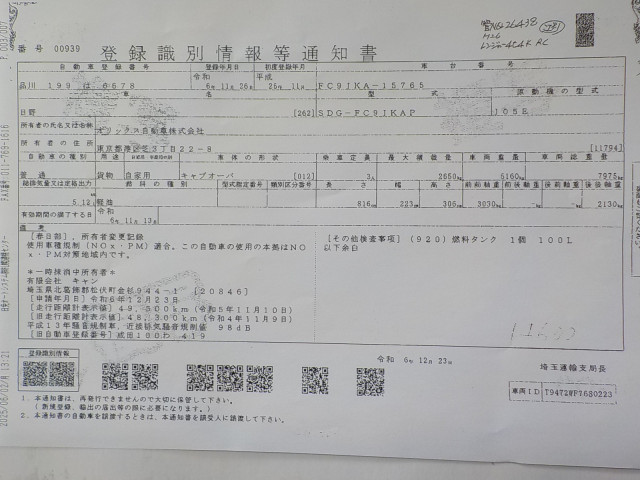 番号 00939
登録識別情報等通知書
自動車登録番号 登録年月日 初度登録年月 車台番号
令和 平成
品川 199 は 6678 6年11月26日 25年11月 FC9JKA-15765
車名 型式 原動機の型式
日野 [262] SDG-FC9JKAP J05E
所有者の氏名又は名称 オリックス自動車株式会社
所有者の住所 東京都港区芝3丁目22-8 [11794]
自動車の種別 用途 自家用・事業用の別 車体の形状 乗車定員 最大積載量 車両重量 車両総重量
普通 貨物 自家用 キャブオーバ [012] 3人 2650kg 5160kg 7975kg
総排気量又は定格出力 燃料の種類 型式指定番号 類別区分番号 長さ 幅 高さ 前前軸重 前後軸重 後前軸重 後後軸重
5.12L 軽油 816cm 223cm 306cm 3030kg -kg -kg 2130kg
有効期間の満了する日
令和
6年11月13日
[春日部]，所有者変更記録
使用車種規制（NOx・PM）適合，この自動車の使用の本拠はNO
x・PM対策地域内です。
*一時抹消中所有者*
有限会社 キャン
埼玉県北葛飾郡松伏町金杉944-1 [20846]
[申請年月日] 令和6年12月23日
[走行距離計表示値] 49,500km（令和5年11月10日）
[旧走行距離計表示値] 48,300km（令和4年11月9日）
平成13年騒音規制車，近接排気騒音規制値 98dB
[旧自動車登録番号] 成田100わ419
[その他検査事項]（920）燃料タンク 1個 100L
以下余白
登録識別情報
令和 6年12月23日
埼玉運輸支局長
車両ID T9472WF7680223
1．本通知書は、再発行できませんので大切に保管して下さい。
（新規登録、輸出の届出等の際に必要になります。）
2．本通知書の自動車を譲渡するときは、本通知書を譲受人に譲渡して下さい。